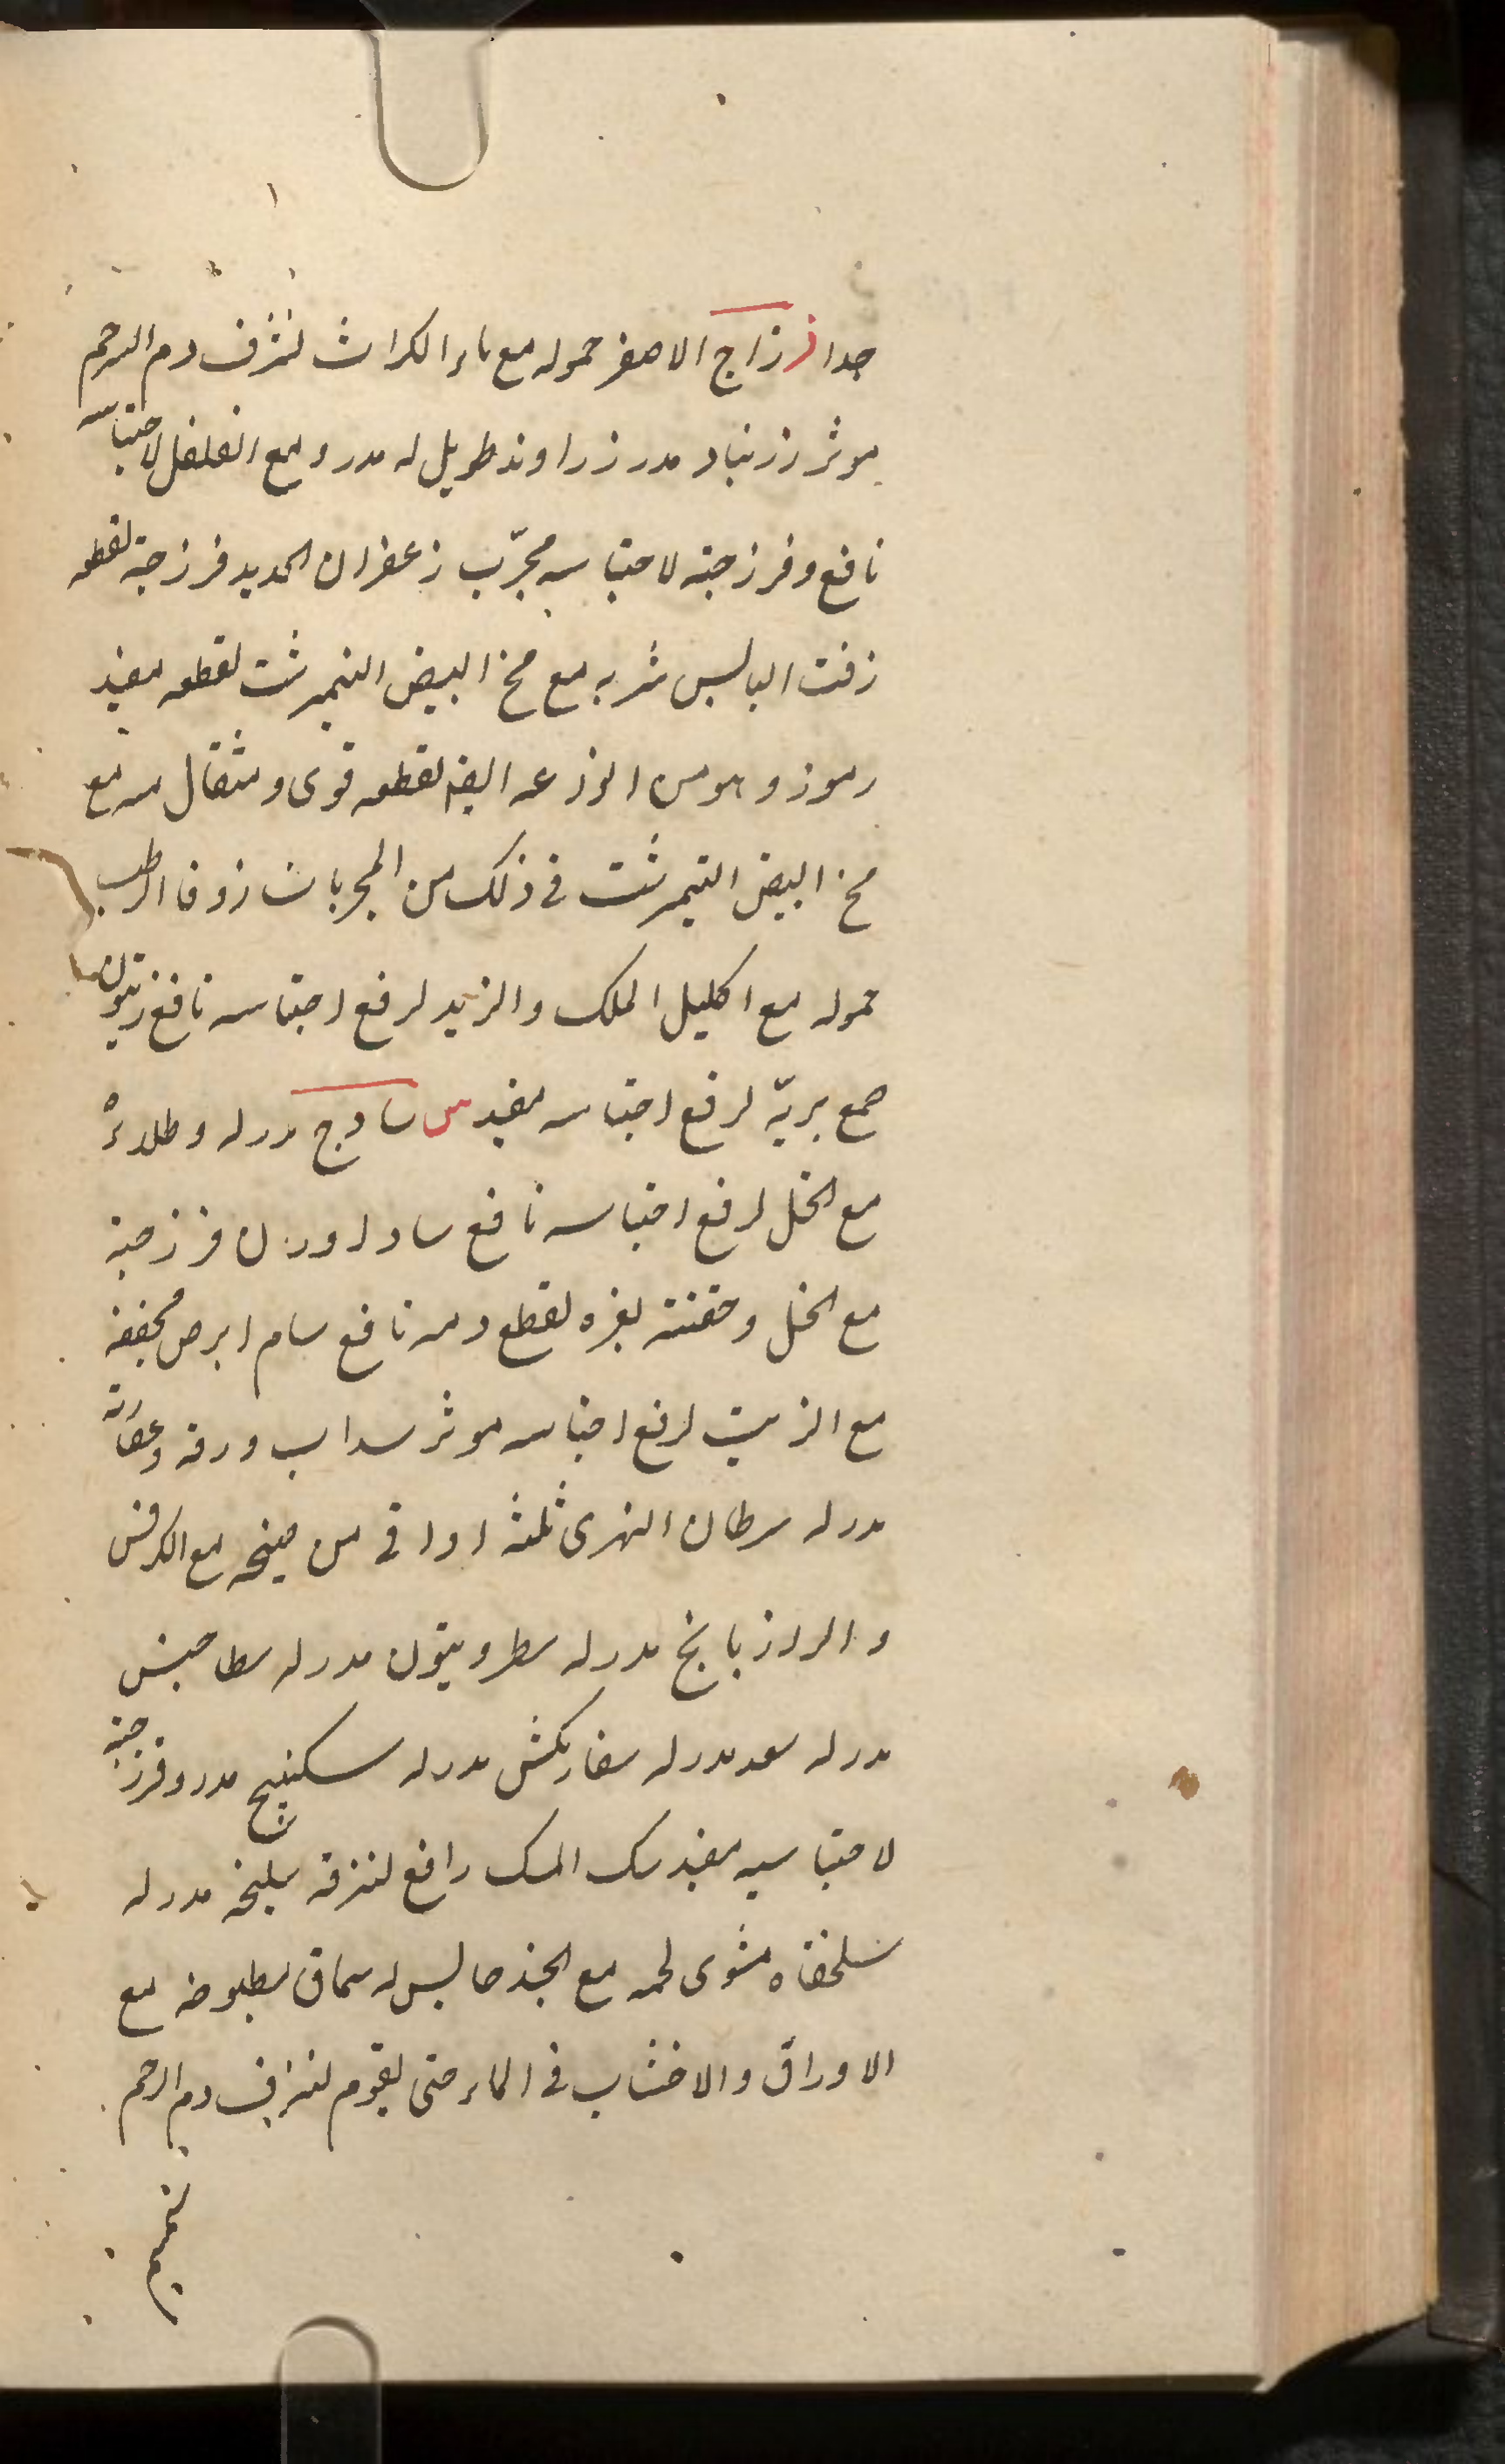 جدا ز زاج الاصفر حموله مع ماء الكراث لنزف دم الرحم
موثر زرنباد مدر زراوند طويل له مدر و مع الفلفل لاحتباسه
نافع و فرزجته لاحتباسه مجرّب زعفران الحديد فرزجته لقطعه
زفت اليابس شربه مع مخ البيض النيمرشت لقطعه مفيد
الوزعه ايضا لقطعه قوى و مثقال منه مع
مخ البيض النيمرشت فى ذلك من المجربات زوفا الرطب
حموله مع اكليل الملك و الزبد لرفع احتباسه نافع زيتون
صمغ بريّه لرفع احتباسه مفيد س ساذج مدر له و طلاءً
مع الخل لرفع احتباسه نافع ساداوران فرزجته
مع الخل و حقنته بغيره لقطع دمه نافع سام ابرص مجففه
مع الزيت لرفع احتباسه موثر سداب ورقه و عصارته
مدر له سرطان النهرى ثلثة اواقى من طبيخه مع الكرفس
و الرازيانج مدر له سطرونيون مدر له سطاخيس
مدر له سعد مدر له مدر له سكبينج مدر و فرزجته
لاحتباسه مفيد سك المسك رافع لنزفه سليخه مدر له
سلحفاه مشوى لحمه مع حابس له سماق مطبوخه مع
الاوراق و الاخشاب فى الماء حتى يقوم لنزف دم الرحم